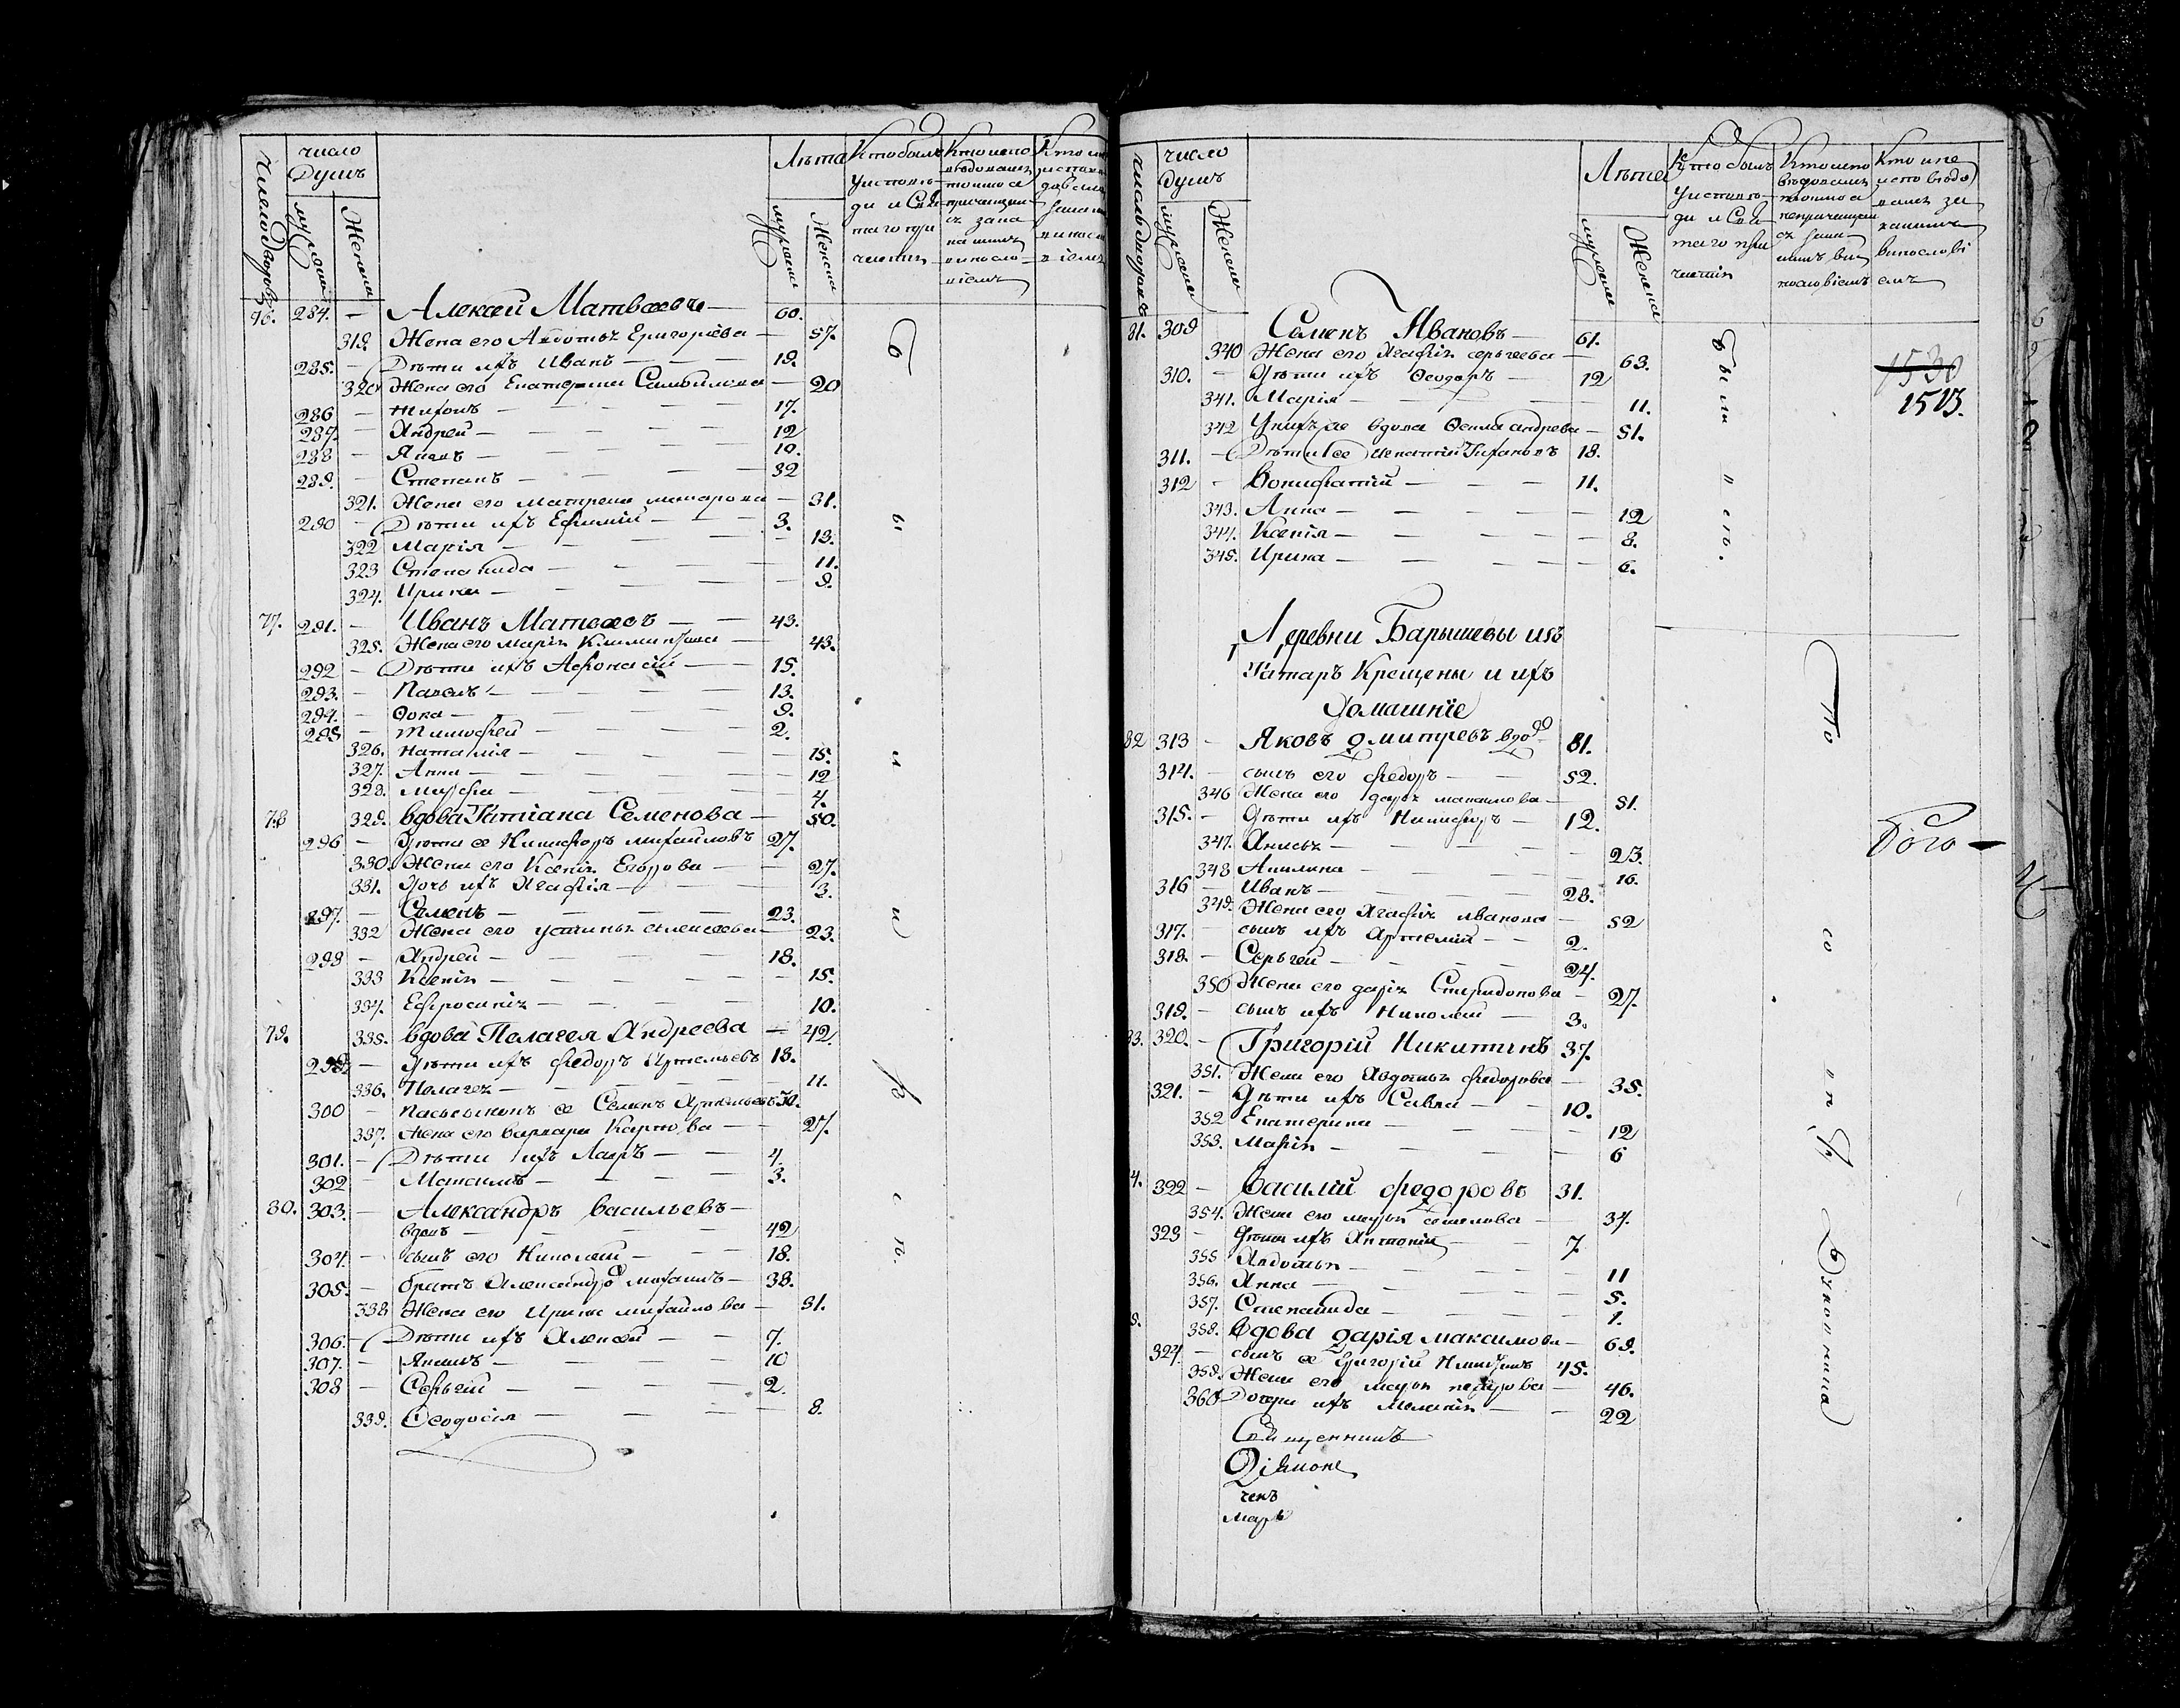 Число дворовъ
число
Душъ
мужеска
Женска
Лѣта
мужеска
Женска
Кто былъ
у исповѣ-
ди и Свя-
таго при
частия
Кто испо
вѣдовался
токмо а
не причащался
съ запи
нашимъ
виносло-
віемъ
76. 284. — Алексѣй Матвѣевъ — 60.
319. Жена его Авдотья Григорьева — 57.
285. — Дѣти ихъ Иванъ — 19.
320 Жена его Екатерина Самойлова — 20
286 — Тихонъ — 17.
287. — Андрей — 12
288 — Яковъ — 10.
289. — Степанъ — 32
321. Жена его Матрена Макарова — 31.
290 — Дѣти ихъ Ефимій — 3.
322 Марія — 13.
323 Степанида — 11.
324. Ирина — 9.
77. 291. — Иванъ Матвѣевъ — 43.
325. Жена его Марія — 43.
292 — Дѣти ихъ Афонасій — 15.
293. — Павелъ — 13.
294. — Фока — 9.
295 — Тимофей — 2.
326. Наталія — 15.
327. Анна — 12
328. Марфа — 4.
78 329. вдова Татіана Семенова — 50.
296 — Дѣти ее Никифоръ Михайловъ 27.
330. Жена его Ксенія Егорова — 27.
331. Дочь ихъ Агафія — 3.
297. — Семенъ — 23.
332 Жена его Устинья Алексѣева — 23.
298 — Андрей — 18.
333 Ксенія — 15.
334. Ефросинія — 10.
79. 335. вдова Пелагея Андреева — 42
299. — Дѣти ихъ Федоръ Артемьевъ 13.
336. Пелагея — 11.
300 — пасынокъ ее Семенъ Артемьевъ 30.
337. Жена его Варвара Карпова — 27.
301. — Дѣти ихъ Лавръ — 4.
302 — Максимъ — 3.
80. 303. — Александръ Васильевъ —
вдовъ — 42
304. — сынъ его Николай — 18.
305. — братъ Александра — 38.
338 Жена его Ирина Михайлова — 31.
306. — Дѣти ихъ Алексѣй — 7.
307. — Якимъ — 10
308 — Сергѣй — 2.
339. Ѳеодосія — 8.
Были и всѣ.
Число дворовъ
число
Душъ
мужеска
Женска
Лѣта
мужеска
Женска
Кто былъ
у исповѣ-
ди и Свя-
таго при
частія
Кто испо
вѣдовался
токмо а
непричащал
ся
винословіемъ
Кто и не
исповѣдо
вался за
какимъ
винослові
емъ
81. 309 Семенъ Ивановъ — 61.
340 Жена его Агафія Сергѣева — 63.
310. — Дѣти ихъ Ѳеодоръ — 12
341. Марія — 11.
342 У нихъ же вдова Ѳекла Андрева — 51.
311. — Дѣти ее Игнатій Тихоновъ 18.
312 — Вонифатій — 11.
343. Анна — 12
344. Ксенія — 8.
345. Ирина — 6.
Были " всѣ.
1530
1513.
Деревни Барышевы изъ
Татаръ Крещены и ихъ
Домашніе
82 313 — Яковъ Дмитревъ вдо 81.
314. — сынъ его Федоръ — 52.
346 Жена его Дарья — 51.
315. — Дѣти ихъ Никифоръ — 12.
347. Анисья — 23.
348 Акилина — 16.
316 — Иванъ — 28.
349. Жена его Агафія Иванова — 52
317. — сынъ ихъ Артемій — 2.
318. — Сергѣй — 24.
350 Жена его Дарія Спиридонова — 27.
319. — сынъ ихъ Николай — 3.
83. 320. — Григорій Никитинъ 37.
351. Жена его Авдотья Федорова — 35.
321. — Дѣти ихъ Савва — 10.
352 Екатерина — 12
353. Марія — 6
4. 322 — Василій Федоровъ 31.
354. Жена его Марья — 37.
323 — Дѣти ихъ Антоній — 7.
355 Авдотья — 11
356. Анна — 5.
357. Степанида — 1.
5. 358. вдова Дарія Максимова — 69.
324. — сынъ ее Григорій 45.
359. Жена его Марья Петрова — 46.
360 Дочери ихъ Меланія — 22
Священникъ
Діякон
ченъ
марь
То
Бого —